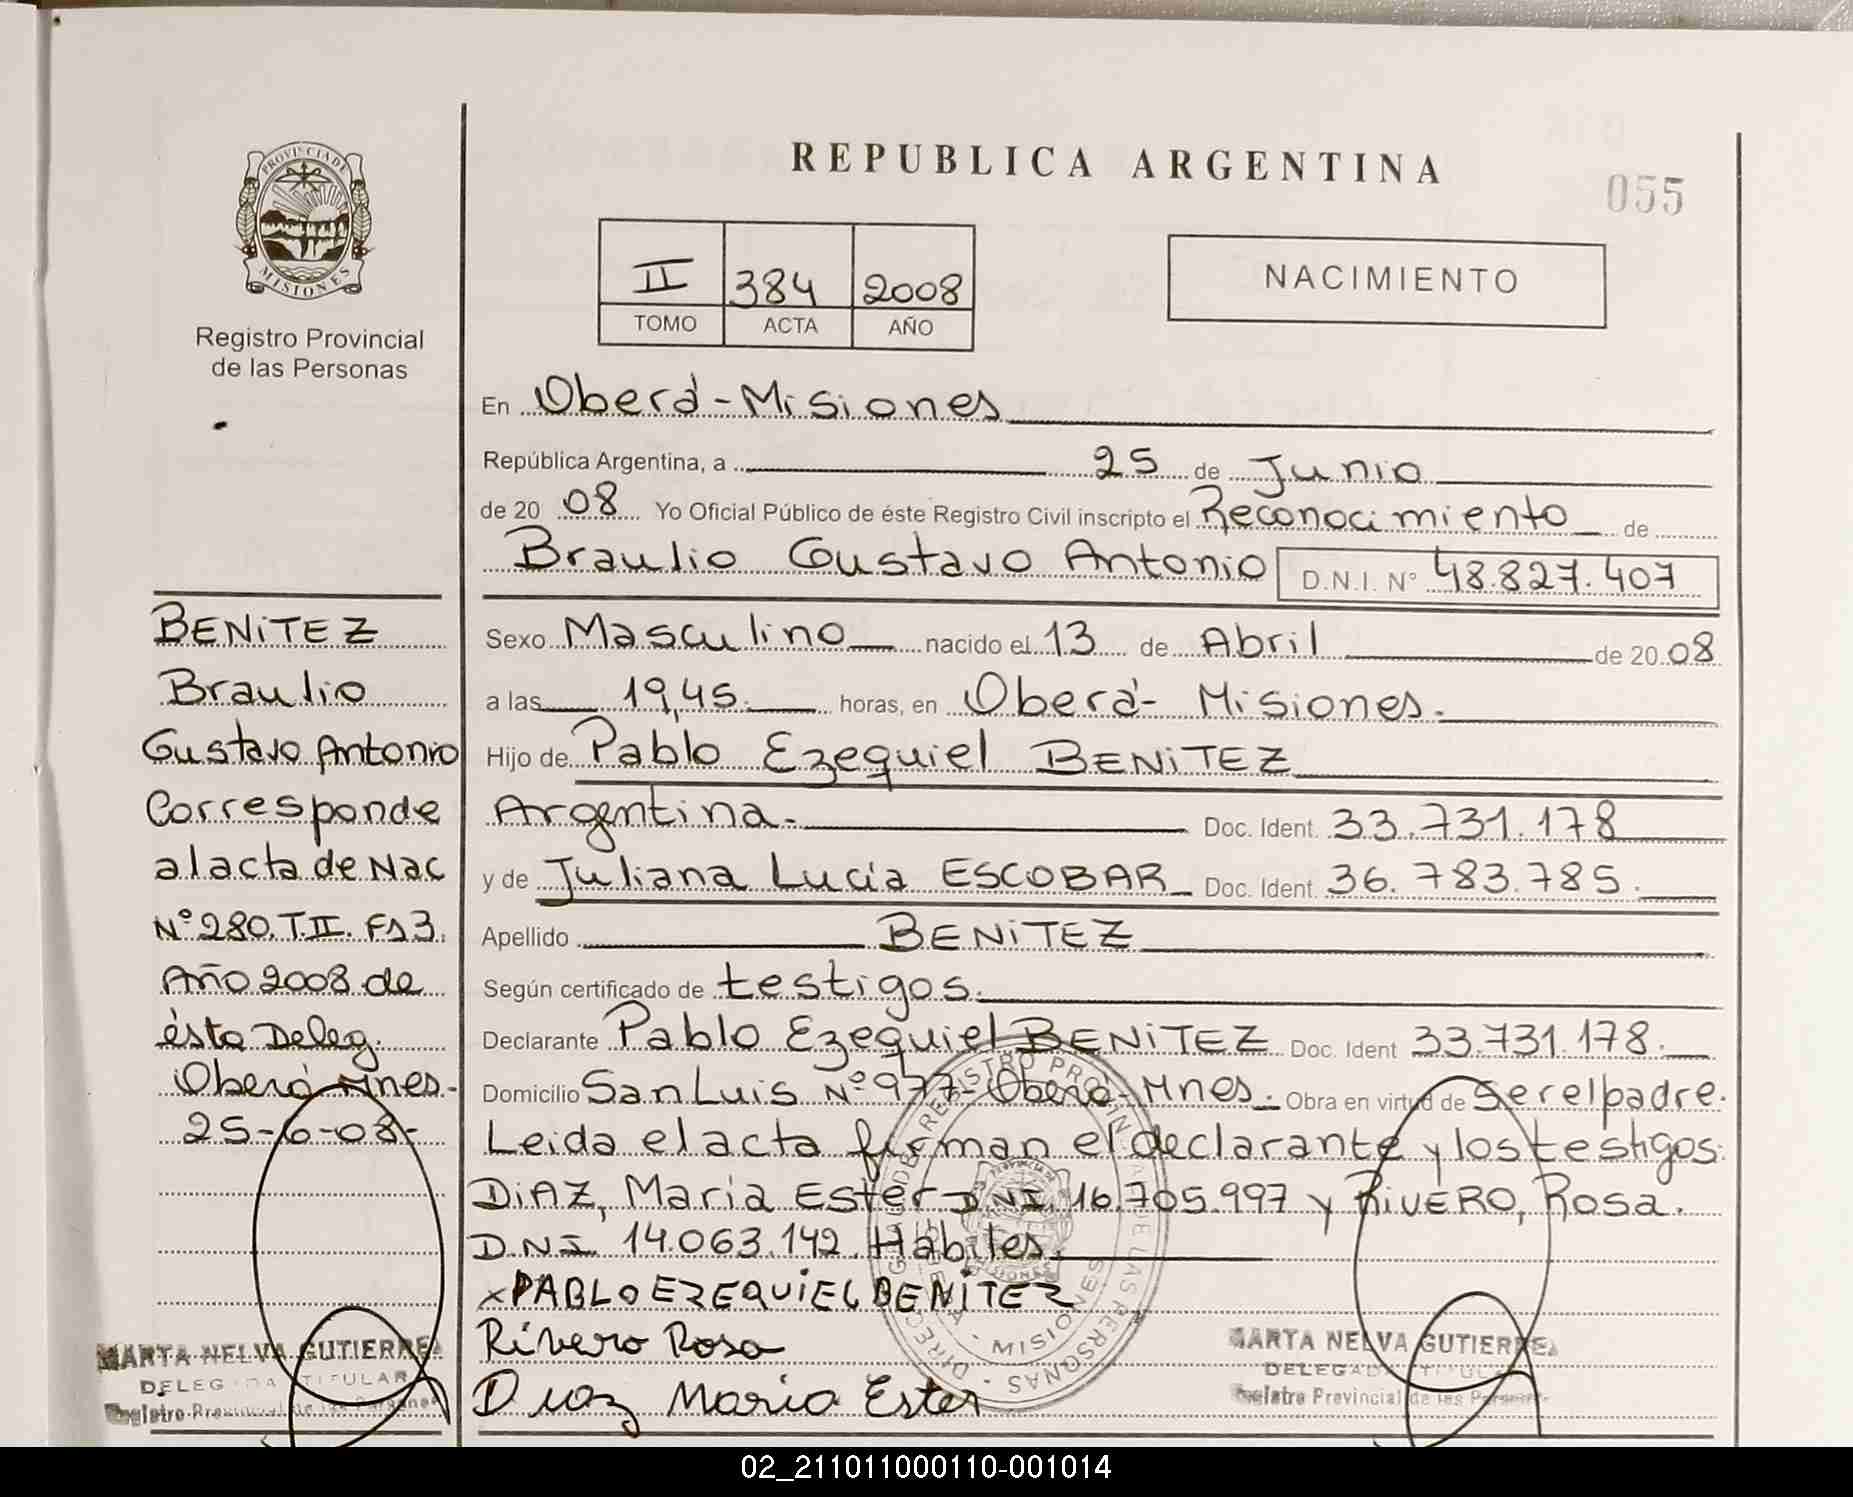 REPUBLICA ARGENTINA
055
PROVINCIA DE
MISIONES
Registro Provincial
de las Personas
II 384 2008
TOMO ACTA AÑO
NACIMIENTO
En Oberá-Misiones
República Argentina, a 25 de Junio
de 2008 Yo Oficial Público de éste Registro Civil inscripto el Reconocimiento de
Braulio Gustavo Antonio D.N.I. Nº 48.827.407
Sexo Masculino nacido el 13 de Abril de 2008
a las 19,45. horas, en Oberá- Misiones.
Hijo de Pablo Ezequiel BENITEZ
Argentina. Doc. Ident. 33.731.178
y de Juliana Lucía ESCOBAR Doc. Ident. 36.783.785.
Apellido BENITEZ
Según certificado de testigos.
Declarante Pablo Ezequiel BENITEZ Doc. Ident 33.731.178.
Domicilio San Luis Nº 977- Oberá-Mnes. Obra en virtud de ser el padre.
Leida el acta firman el declarante y los testigos:
DIAZ, María Ester D.N.I. 16.705.997 y RIVERO, Rosa.
D.N.I. 14.063.142. Hábiles.
x PABLO EZEQUIEL BENITEZ
Rivero Rosa
Diaz Maria Ester
BENITEZ
Braulio
Gustavo Antonio
Corresponde
al acta de Nac
Nº 280. T.II. Fs 3.
Año 2008 de
ésta Deleg.
Oberá Mnes.-
25-6-08-
MARTA NELVA GUTIERREZ
DELEGADA TITULAR
Registro Provincial de las Personas
MARTA NELVA GUTIERREZ
DELEGADA TITULAR
Registro Provincial de las Personas
MISIONES
02_211011000110-001014